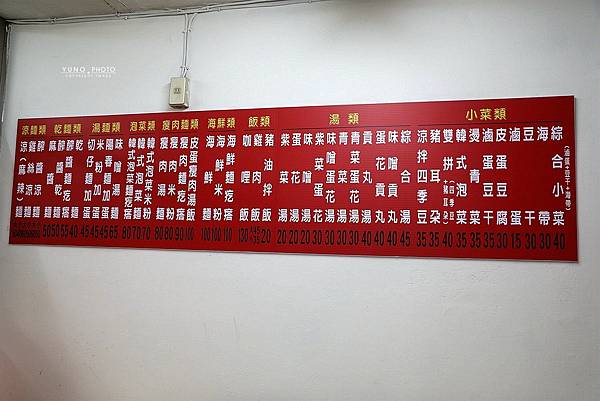 YUNO PHOTO
涼麵類
乾麵類
湯麵類
泡菜類
瘦肉麵類
海鮮類
飯類
湯類
小菜類
涼(麻辣)麵
雞絲涼麵
酸醬涼麵
麻醬麵 50
醉醬乾麵 50
醉醬麵疙瘩 55
乾麵 40
切仔麵 45
米粉湯
陽春麵加蛋 45
味噌湯麵 65
韓式泡菜麵 80
韓式泡菜米粉 70
韓式泡菜麵疙瘩 70
瘦肉湯麵 80
瘦肉米粉 80
瘦肉麵疙瘩 90
皮蛋瘦肉湯飯 100
海鮮麵 100
海鮮米粉 100
海鮮麵疙瘩 110
咖哩飯 130
雞肉飯
豬油拌飯 20
紫菜湯 20
蛋花湯 20
味噌湯 30
紫菜蛋花湯 30
青菜湯 30
青菜蛋花湯 30
貢丸湯 40
味噌貢丸湯 40
綜合湯 45
涼拌四季豆 35
豬耳朵 35
雙拼(四季豆+豬耳朵) 40
韓式泡菜 35
燙青菜 35
滷蛋豆干 35
皮蛋豆腐 30
滷蛋 15
豆干 30
海帶 30
綜合小菜(滷蛋+豆干+海帶) 40